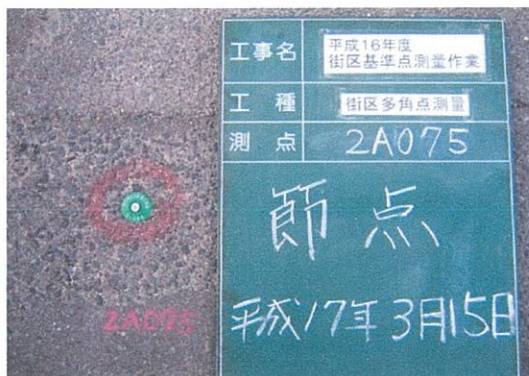 工事名
平成16年度
街区基準点測量作業
工種
街区多角点測量
測点
2A075
節点
平成17年3月15日
2A075